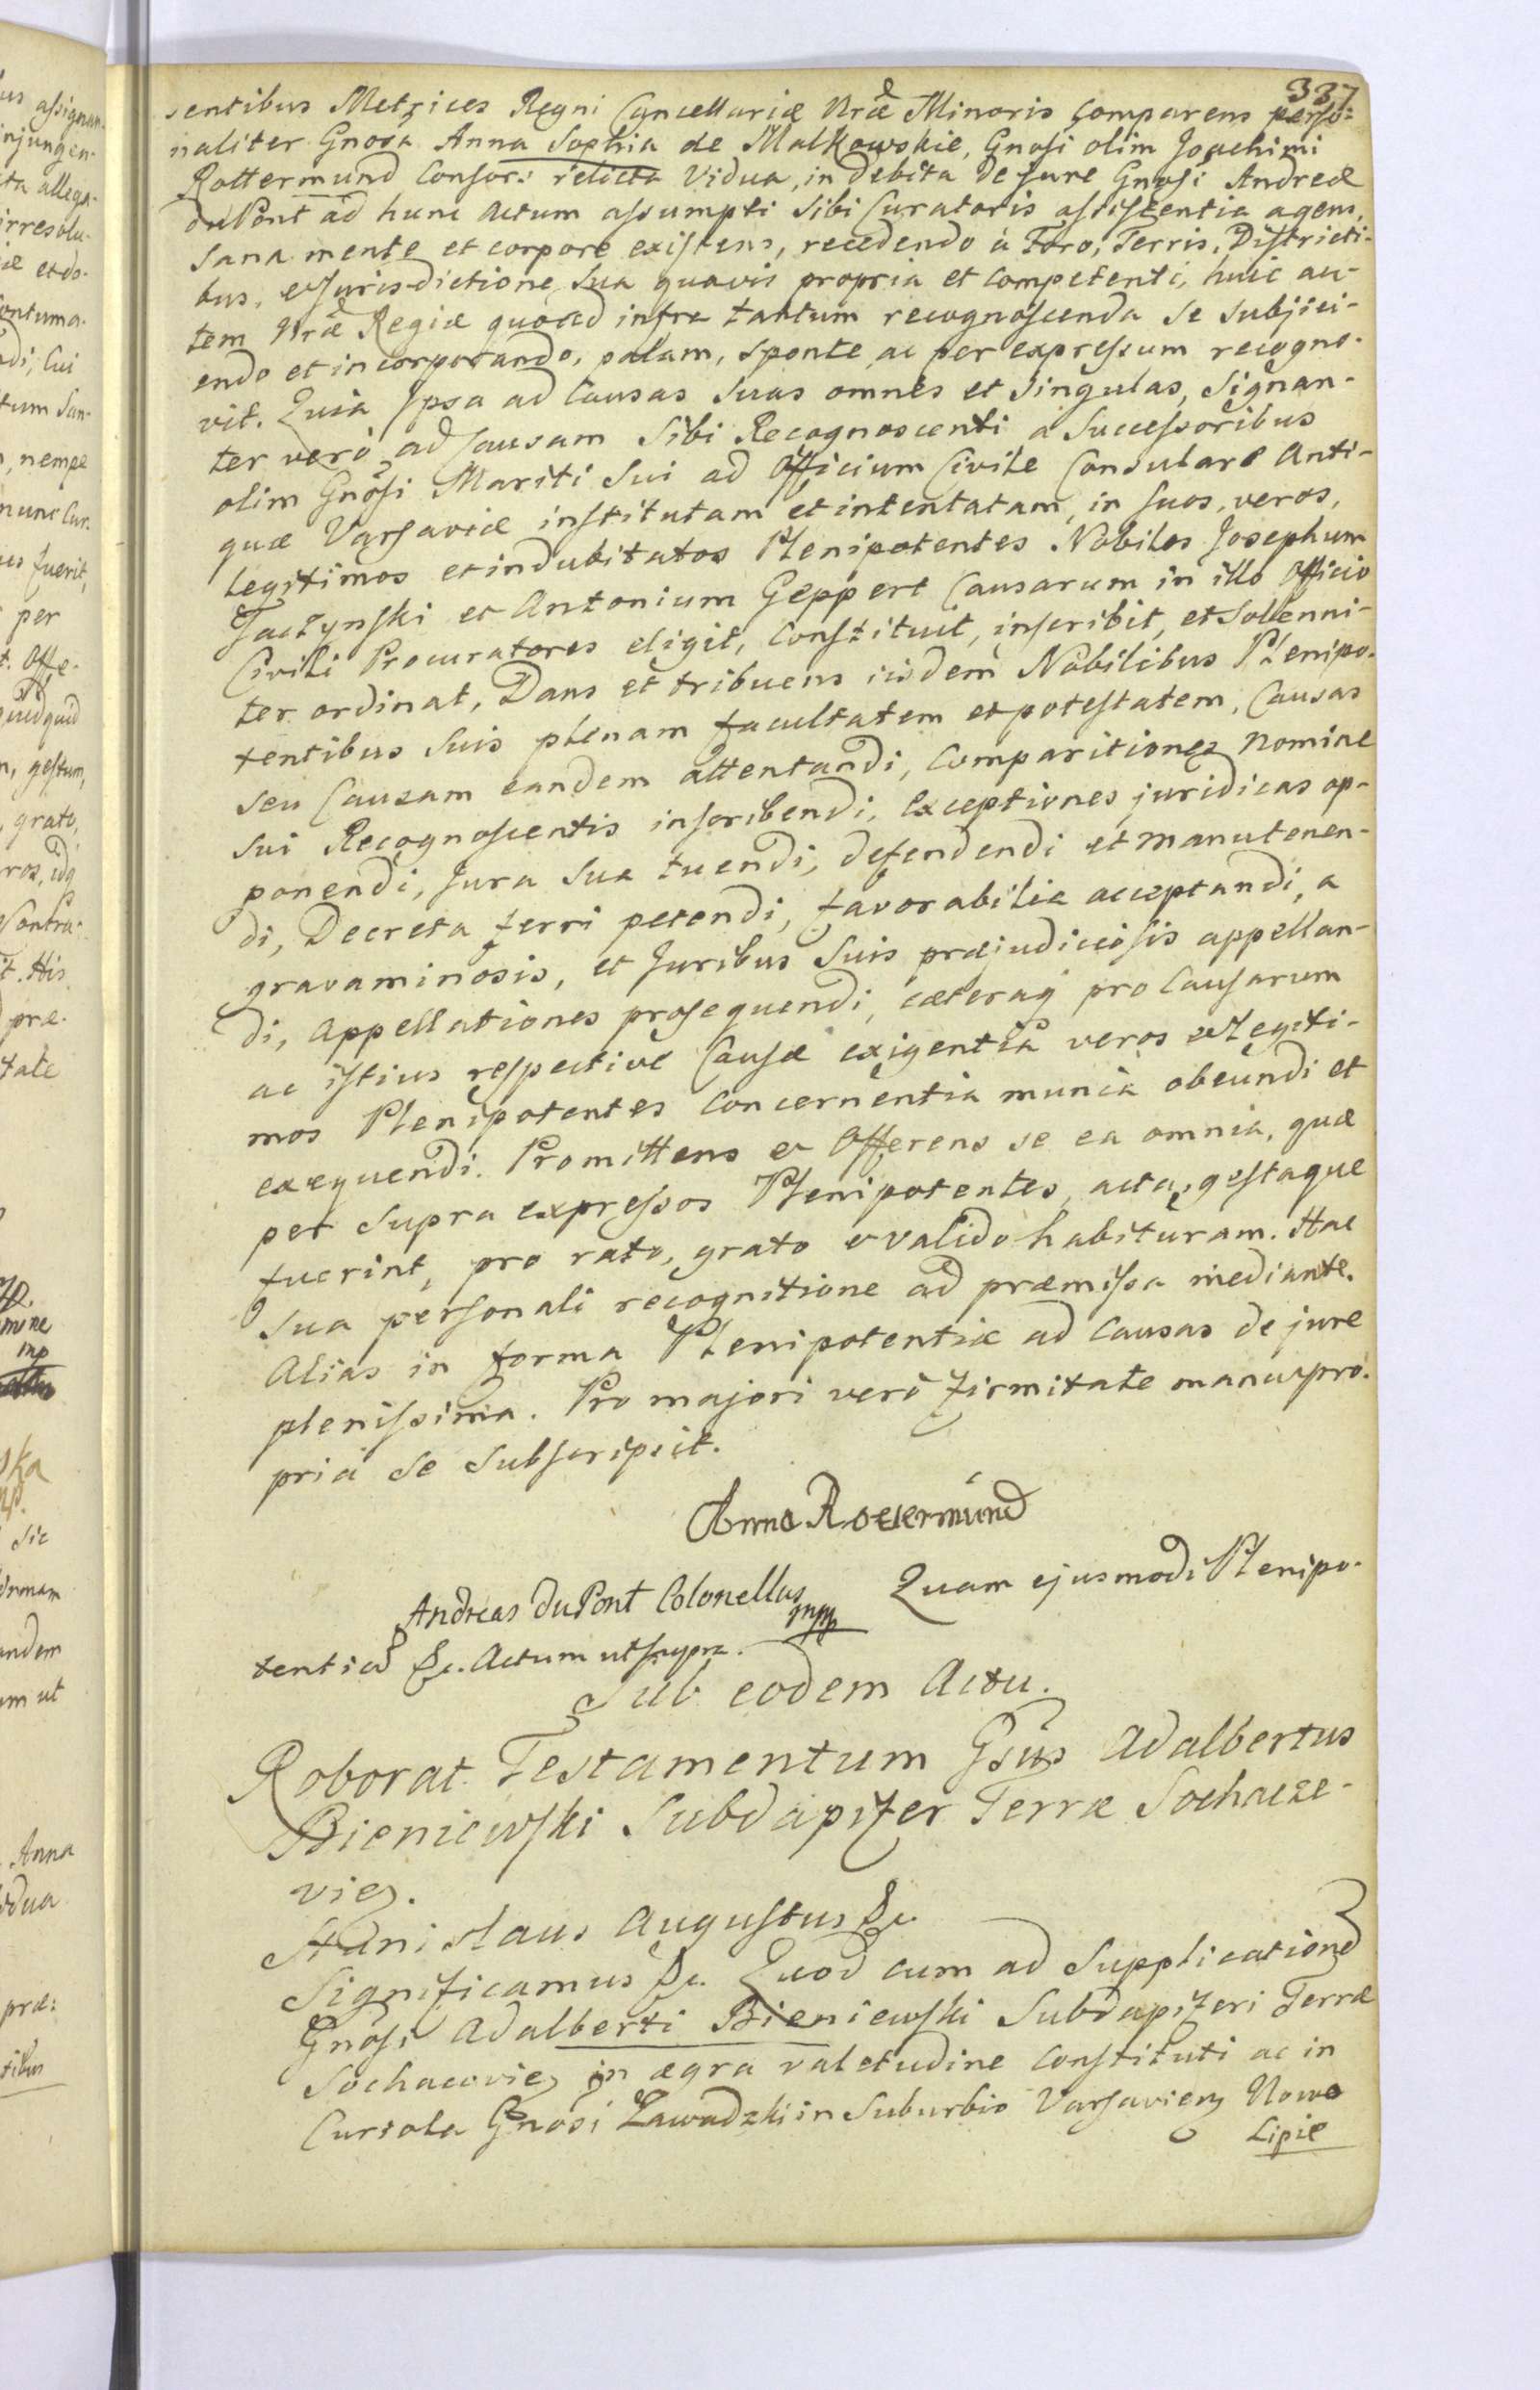 337
sentibus Metrices Regni Cancellariæ Nræ Minoris Comparens perso-
naliter Gnosa Anna Sophia de Malkowskie, Gnosi olim Joachimi
Rottermund Consor: relicta Vidua, in debita de Jure Gnosi Andreæ
duPont ad hunc Actum assumpti Sibi Curatoris assistentia agens,
Sana mente et corpore existens, recedendo à Foro, Terris, Districti-
bus, et Jurisdictione Sua quavis propria et Competenti, huic au-
tem Nræ Regiæ quoad infra tantum recognoscenda se Subjici-
endo et incorporando, palam, sponte ac per expressum recogno-
vit. Quia Ipsa ad Causas Suas omnes et Singulas, Signan-
ter verò ad Causam Sibi Recognoscenti a Successoribus
olim Gnosi Mariti Sui ad Officium Civile Consulare Anti-
quæ Varsaviæ institutam et intentatam, in Suos, veros,
legitimos et indubitatos Plenipotentes Nobiles Josephum
Taczynski et Antonium Geppert Causarum in illo Officio
Civili Procuratores eligit, Constituit, inscribit, et Sollenni-
ter ordinat, Dans et tribuens iisdem Nobilibus Plenipo-
tentibus Suis plenam facultatem et potestatem, Causas
seu Causam eandem attentandi, Comparitiones nomine
Sui Recognoscentis inscribendi, Exceptiones juridicas op-
ponendi, Jura Sua tuendi, defendendi et manutenen-
di, Decreta ferri petendi, favorabilia acceptandi, a
gravaminosis, et Juribus Suis præjudiciosis appellan-
di, Appellationes prosequendi, cæteraq pro Causarum
ac istius respective Causæ exigentia veros et Legiti-
mos Plenipotentes Concernentia munia obeundi et
exequendi. Promittens et Offerens se ea omnia, quæ
per Supra expressos Plenipotentes, acta, gestaque
fuerint, pro rato, grato et valido habituram. Hac
Sua personali recognitione ad præmissa mediante.
Alias in forma Plenipotentiæ ad Causas de jure
plenissima. Pro majori verò firmitate manu pro-
pria Se Subscripsit.
Anna Rottermund
Andreas duPont Colonellus mpp Quam ejusmodi Plenipo-
tentia &c. Actum ut supra.
Sub eodem Actu.
Roborat. Testamentum Gsus Adalbertus
Bieniewski Subdapifer Terræ Sochacze-
vien.
Stanislaus Augustus &c.
Significamus &c. Quod cum ad Supplicatione
Gnosi Adalberti Bieniewski Subdapiferi Terræ
Sochacovien in ægra valetudine Constituti ac in
Curiola Gnosi Zawadzki in Suburbio Varsavien Nowo
Lipie